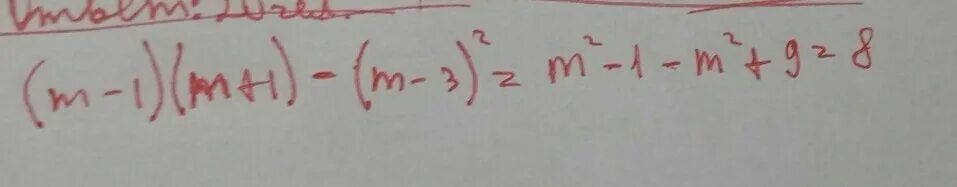 (m-1)(m+1)-(m-3)²= m²-1-m²+9=8